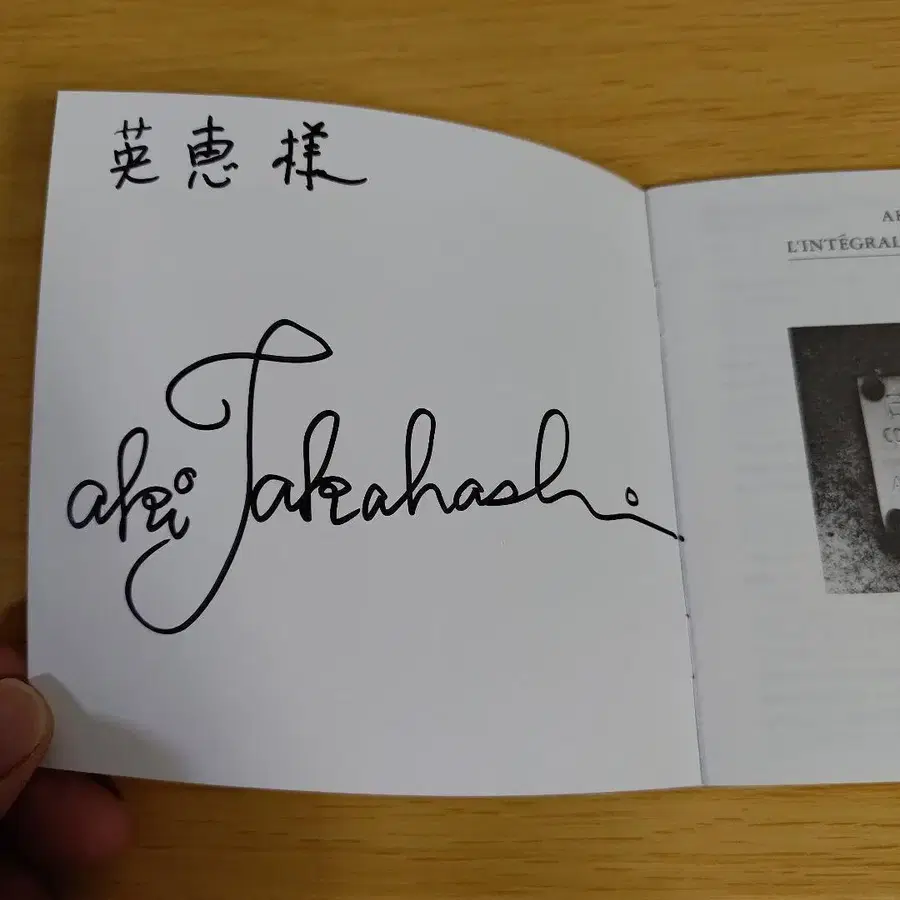 英恵様
aki Takahashi
L'INTÉGRAL